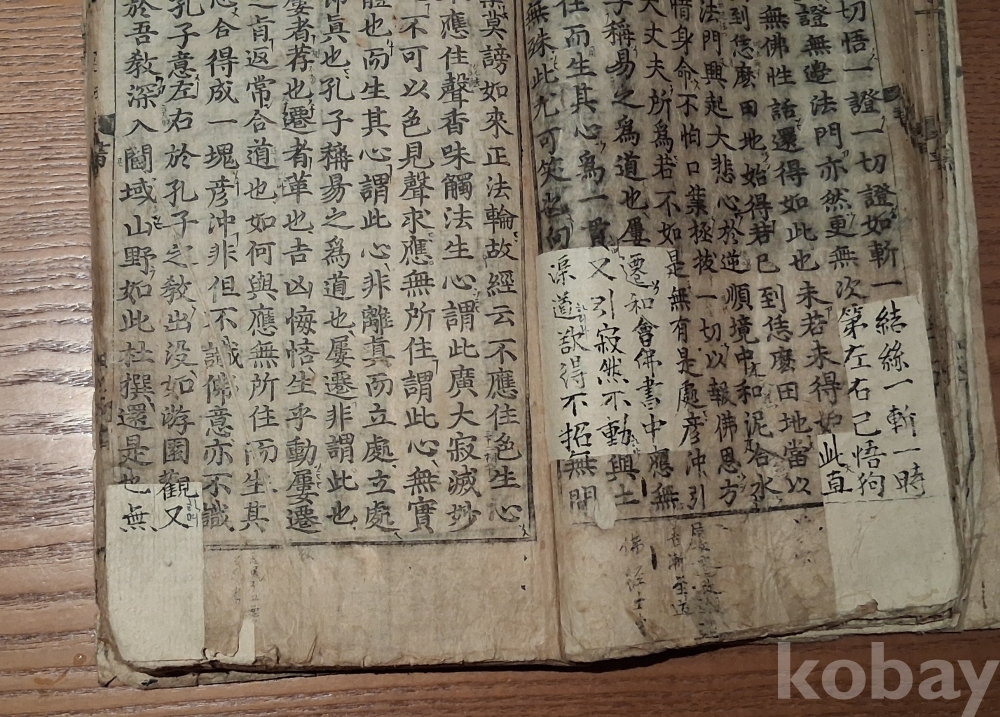 切悟一證一切證如斬一結絲一斬一時
證無邊法門亦然更無次第左右已悟狗
無佛性話還得如此也未若未得如此直
到恁麽田地始得若已到恁麽田地當以
法門興起大悲心於逆順境中和泥合水
惜身命不怕口業拯拔一切以報佛恩方
大丈夫所爲若不如是無有是處彦沖引
子稱易之爲道也屢遷和會佛書中應無
住而生其心爲一貫又引寂然不動與土
無殊此尤可笑也向渠道欲得不招無間
業莫謗如來正法輪故經云不應住色生心
不應住聲香味觸法生心謂此廣大寂滅妙
不可以色見聲求應無所住謂此心無實
體也而生其心謂此心非離眞而立處立處
眞也孔子稱易之爲道也屢遷非謂此也
屢者荐也遷者革也吉凶悔悋生乎動屢遷
之旨返常合道也如何與應無所住而生其
心合得成一塊彦沖非但不識佛意亦不識
孔子意左右於孔子之敎出没如游園觀又
於吾敎深入閫域山野如此杜撰還是也無
kobay